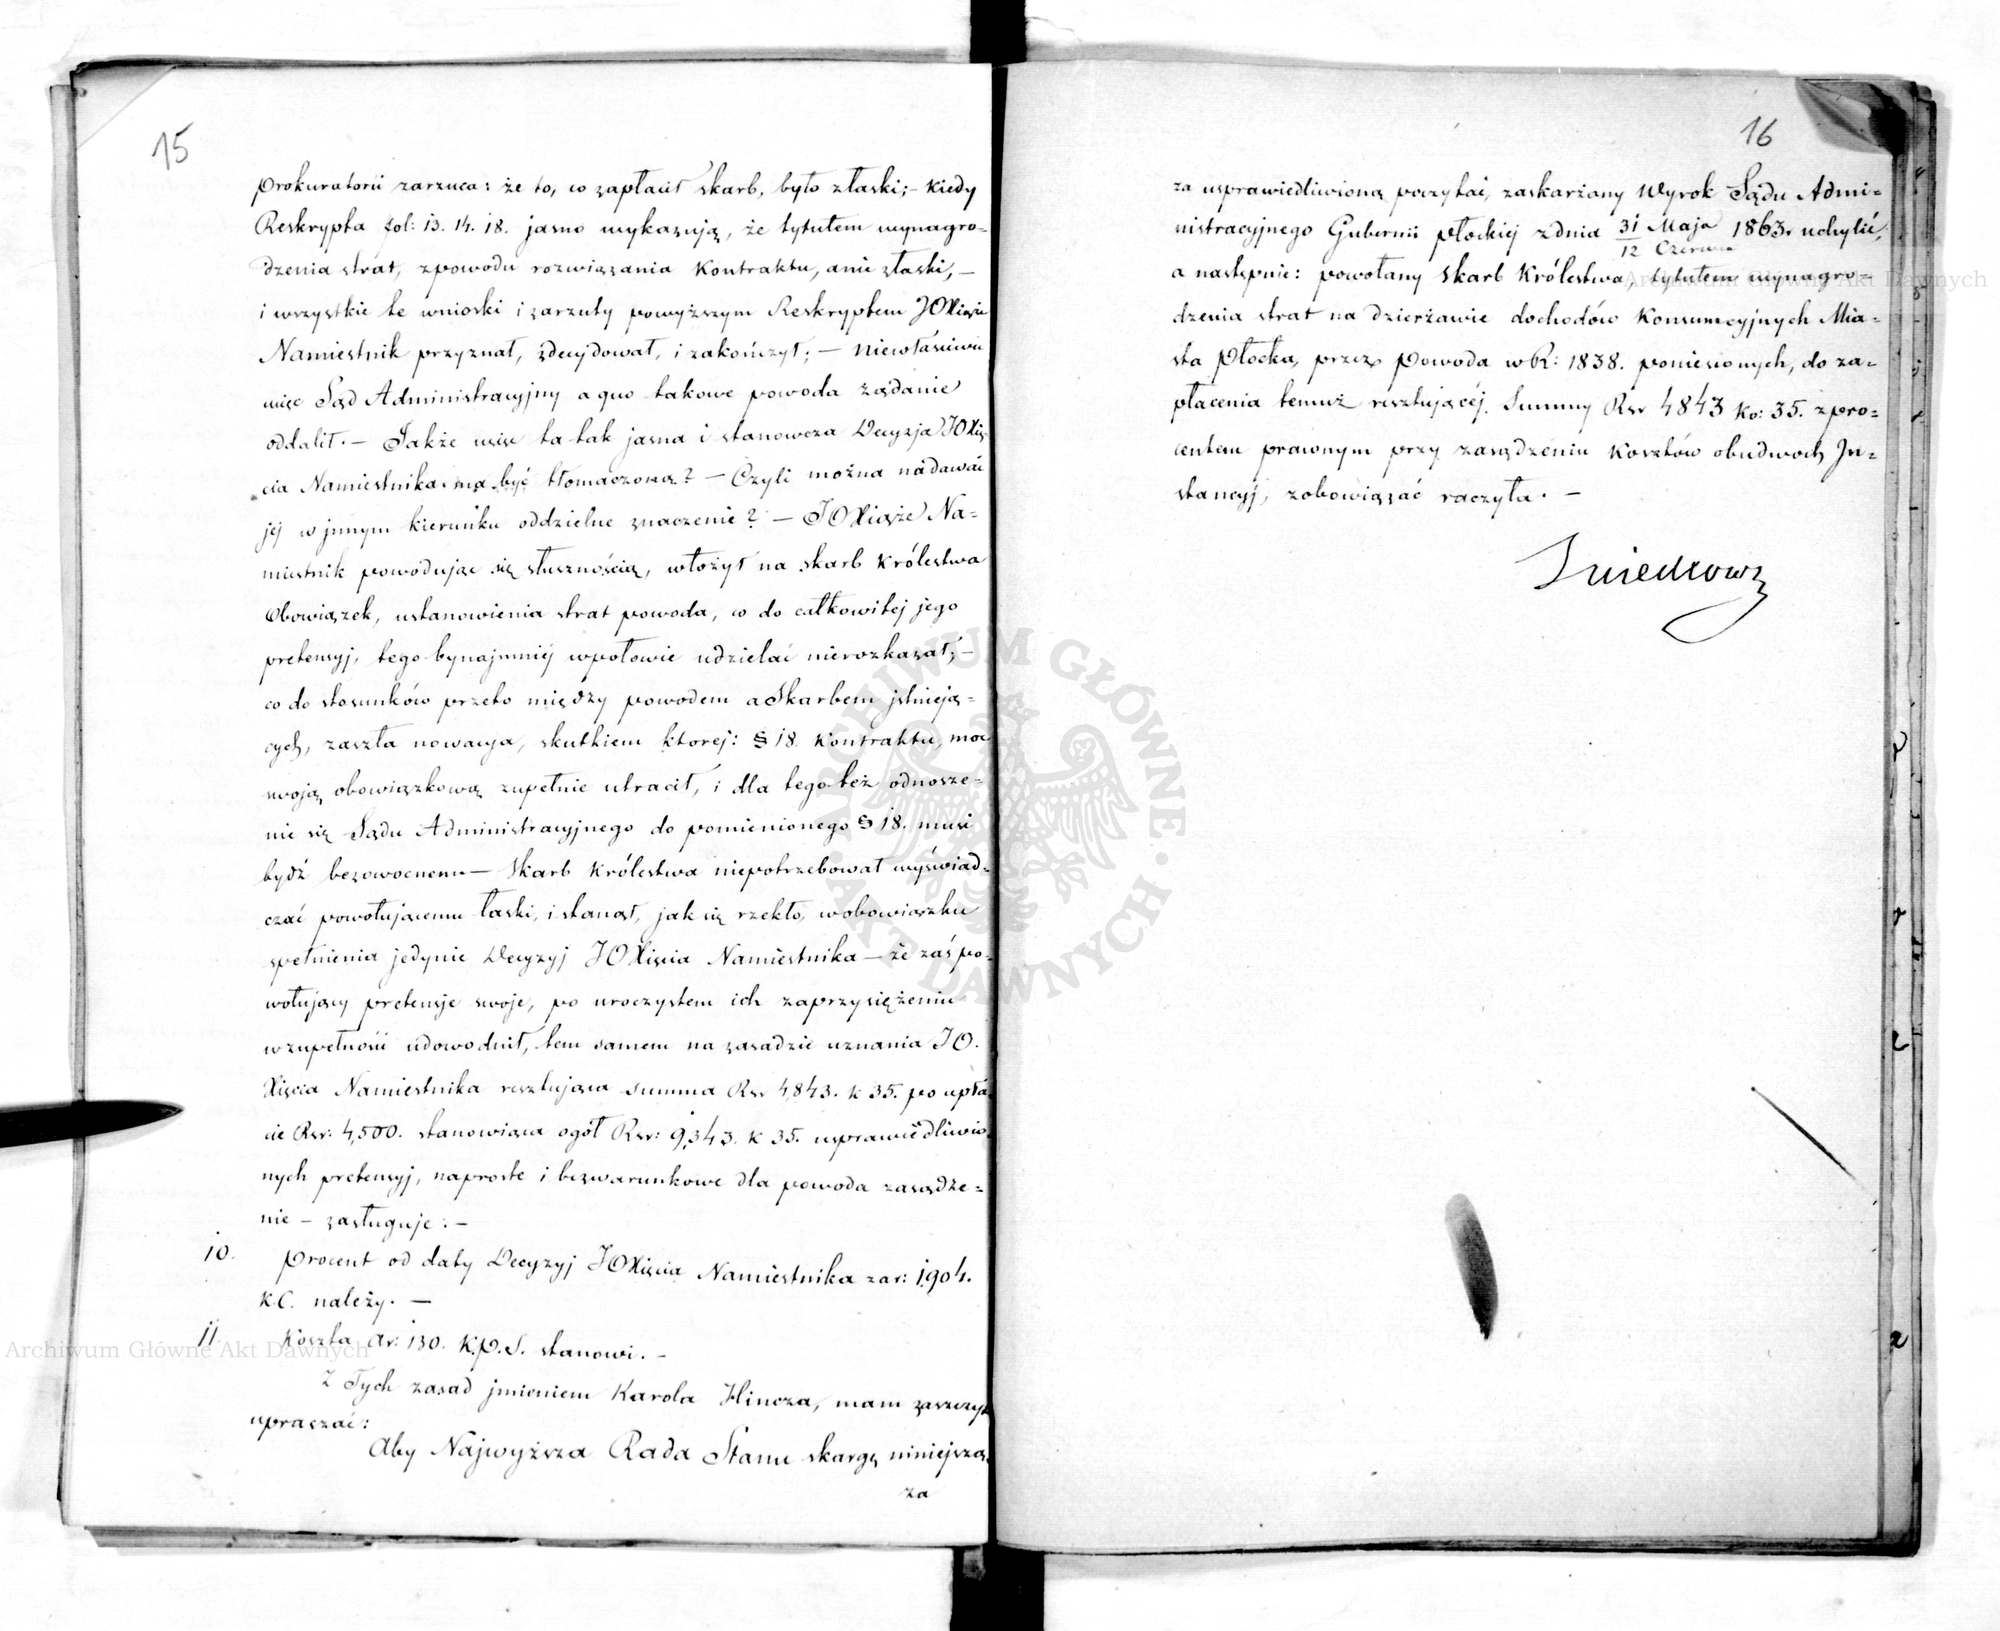 15
prokuratorii zarzuca: że to, co zapłacił Skarb, było z łaski; – kiedy
Reskrypta fol: 13. 14. 18. jasno wykazują, że tytułem wynagro=
dzenia strat, z powodu rozwiązania Kontraktu, a nie z łaski, –
i wszystkie te wnioski i zarzuty powyższym Reskryptem JOXiąże
Namiestnik przyznał, zdecydował, i zakończył; – niewłaściwie
więc Sąd Administracyjny a quo takowe powoda żądanie
oddalił. – Jakże więc ta tak jasna i stanowcza Decyzja JOXię=
cia Namiestnika ma być tłomaczona? – Czyli można nadawać
jéj w jnnym kierunku oddzielne znaczenie? – JOXiąże Na=
miestnik powodując się słusznością, włożył na Skarb Królestwa
Obowiązek, ustanowienia strat powoda, co do całkowitej jego
pretensyj, tego bynajmniéj w połowie udzielać nierozkazał; –
co do stosunków przeto między powodem a Skarbem jstnieją=
cych, zaszła nowacya, skutkiem ktorej: § 18. Kontraktu, moc
swoją obowiązkową zupełnie utracił, i dla tego też odnosze=
nie się Sądu Administracyjnego do pomienionego § 18. musi
bydź bezowocnem – Skarb Królestwa niepotrzebował wyświad=
czać powołującemu łaski, i stanął, jak się rzekło, w obowiązku
spełnienia jedynie Decyzyj JOXięcia Namiestnika – że zaś po=
wołujący pretensje swoje, po uroczystem ich zaprzysiężeniu
w zupełności udowodnił, tem samem na zasadzie uznania JO.
Xięcia Namiestnika resztująca summa Rsr 4,843. k 35. po upła
cie Rsr: 4,500. stanowiąca ogół Rsr: 9,343. k 35. usprawiedliwio
nych pretensyj, naproste i bezwarunkowe dla powoda zasądze=
nie – zasługuje: –
10. Procent od daty Decyzyj JOXięcia Namiestnika z ar: 1904.
K.C. należy. –
11. Koszta ar: 130. K.P.S. stanowi. –
Z Tych zasad jmieniem Karola Hincza, mam zaszczyt
upraszać:
Aby Najwyższa Rada Stanu skargę niniejszą
za
16
za usprawiedliwioną poczytać, zaskarżany Wyrok Sądu Admi=
nistracyjnego Gubernii Płockiéj z dnia 31 Maja / 12 Czerwca 1863r uchylić,
a następnie: powołany Skarb Królestwa, tytułem wynagro=
dzenia strat na dzierżawie dochodów Konsumcyjnych Mia=
sta Płocka, przez Powoda w R: 1838. poniesionych, do za=
płacenia temuż resztującéj Summy Rsr 4843 ko: 35. z pro=
centem prawnym przy zasądzeniu Kosztów obudwoch Jn=
stancyj, zobowiązać raczyła. –
Archiwum Główne Akt Dawnych
Archiwum Główne Akt Dawnych
ARCHIWUM GŁÓWNE · AKT DAWNYCH ·